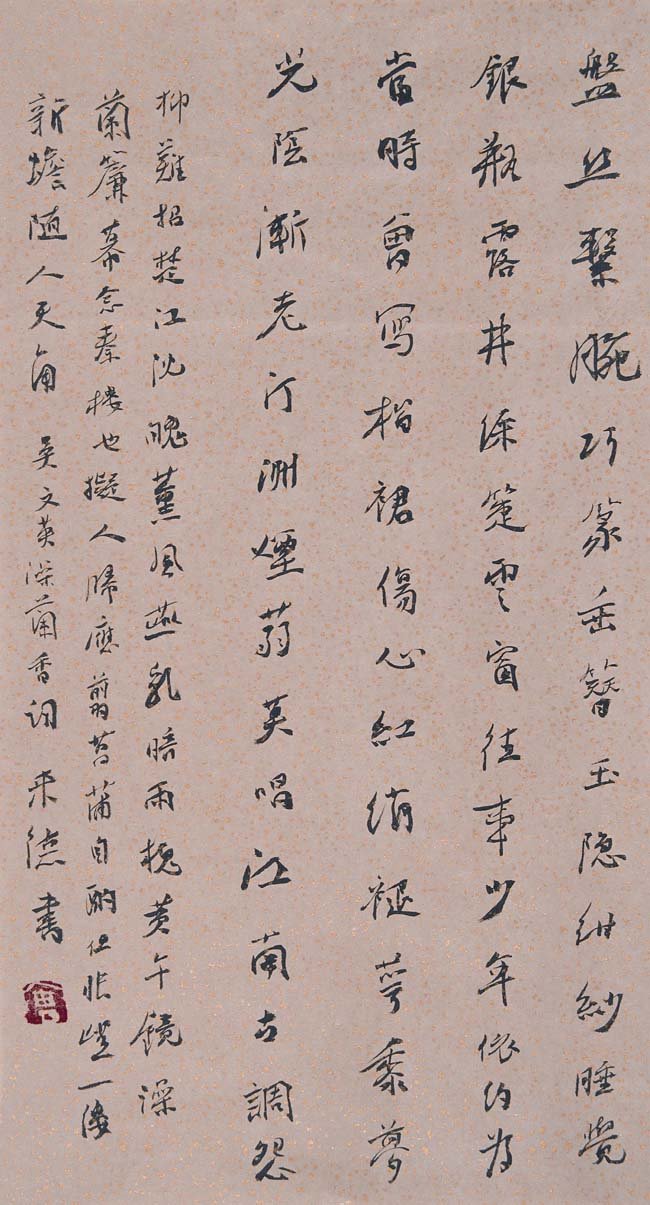 盤丝繫腕巧篆垂簪玉隐紺紗睡覺
銀瓶露井綵箑雲窗往事少年依約为
當時曾寫榴裙傷心紅綃褪萼黍夢
光陰漸老汀洲煙蒻莫唱江南古調怨
抑難招楚江沈魄薰風燕乳暗雨槐黄午鏡澡
蘭簾幕念秦樓也擬人歸應翦菖蒲自酌但悵望一縷
新蟾随人天角 吴文英澡蘭香詞 来德書